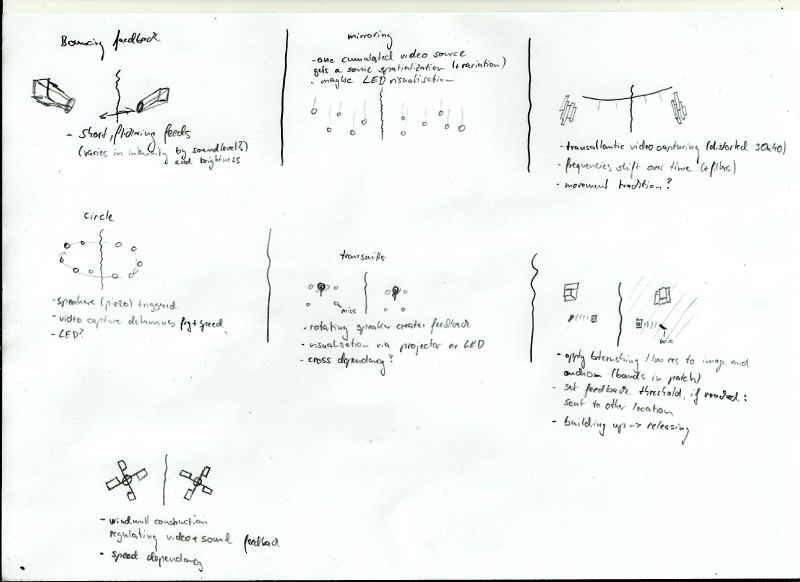 Bouncing feedback
- short, flickering feeds
(varies in intensity by soundlevel?)
and brightness
mirroring
- one cumulated video source
gets a sonic spatialization (+ variation)
- maybe LED visualisation
- transatlantic video capturing (distorted 30x40)
- frequencies shift over time (+ filters)
- movement tradition?
circle
- speakers (piezo) triggered
- video capture determines frq + speed
- LED?
mics
- rotating speaker creates feedback
- visualisation via projector or LED
- cross dependency?
mic
- apply bitcrushing / low res to image and
(bands in patch)
- set feedback threshold, if reached:
sent to other location
- building up -> releasing
- windmill construction
regulating video + sound feedback
- speed dependency